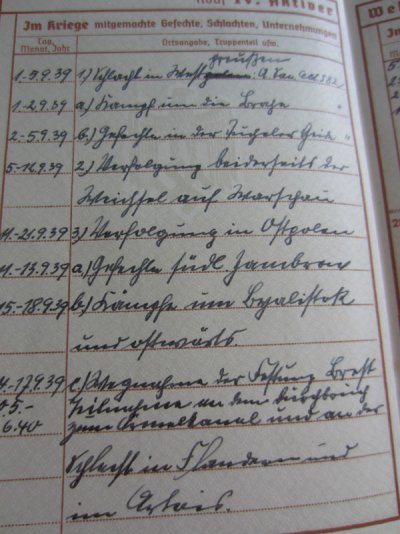 noch IV. Aktiver
Im Kriege mitgemachte Gefechte, Schlachten, Unternehmungen
Tag, Monat, Jahr
Ortsangabe, Truppenteil usw.
preußen
1.-5.9.39 1) Schlacht in West
1.-2.9.39 a) Kampf um die Brahe "
2.-5.9.39 b.) Gefechte in der Tucheler Heide "
5.-12.9.39 2.) Verfolgung beiderseits der
Weichsel auf Warschau
11.-21.9.39 3) Verfolgung in Ostpolen
11.-13.9.39 a) Gefechte südl. Zambrow
15.-18.9.39 b.) Kämpfe um Byalistok
und ostwärts
14.-17.9.39 c.) Wegnahme der Festung Brest
Teilnahme an dem Durchbruch
6.40 zum Ärmelkanal und an der
Schlacht in Flandern und
im Artois.
We
Im